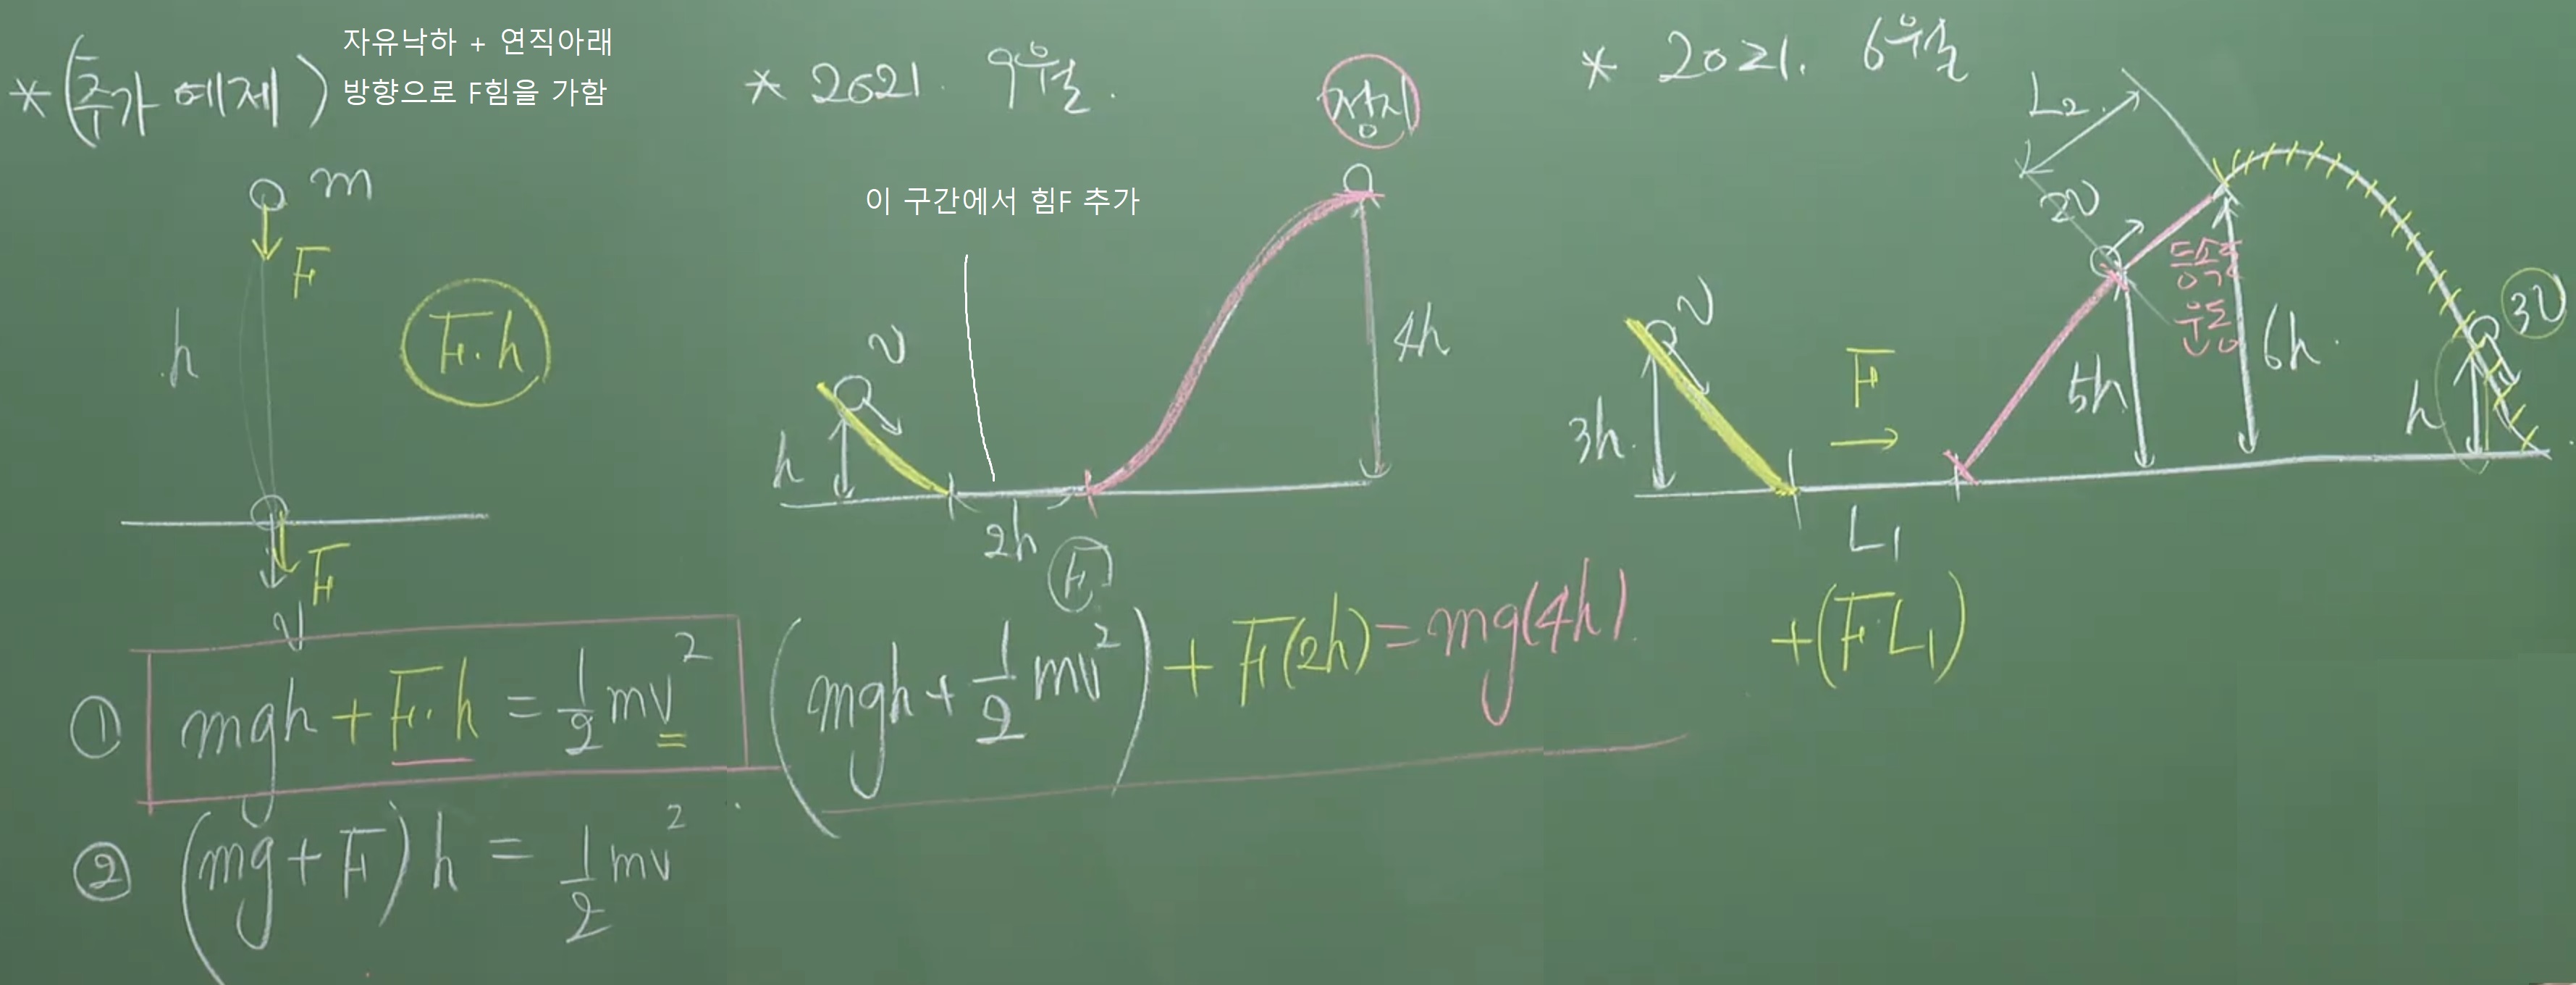 *(추가 예제)
자유낙하 + 연직아래
방향으로 F힘을 가함
m
F
h
F·h
F
v
① mgh + F·h = 1/2 mv²
② (mg + F)h = 1/2 mv²
* 2021. 9월.
정지
이 구간에서 힘F 추가
v
h
4h
2h
F
(mgh + 1/2 mv²) + F(2h) = mg(4h).
* 2021. 6월
L₂
2v
등속력
운동
3v
v
3h.
F
5h
6h.
h
L₁
+(F·L₁)